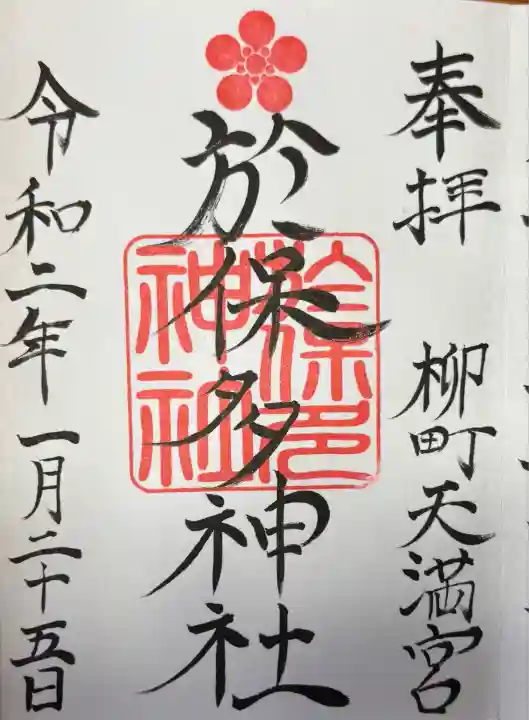 奉拝 柳町天満宮
於保多神社
於保多神社
令和二年一月二十五日